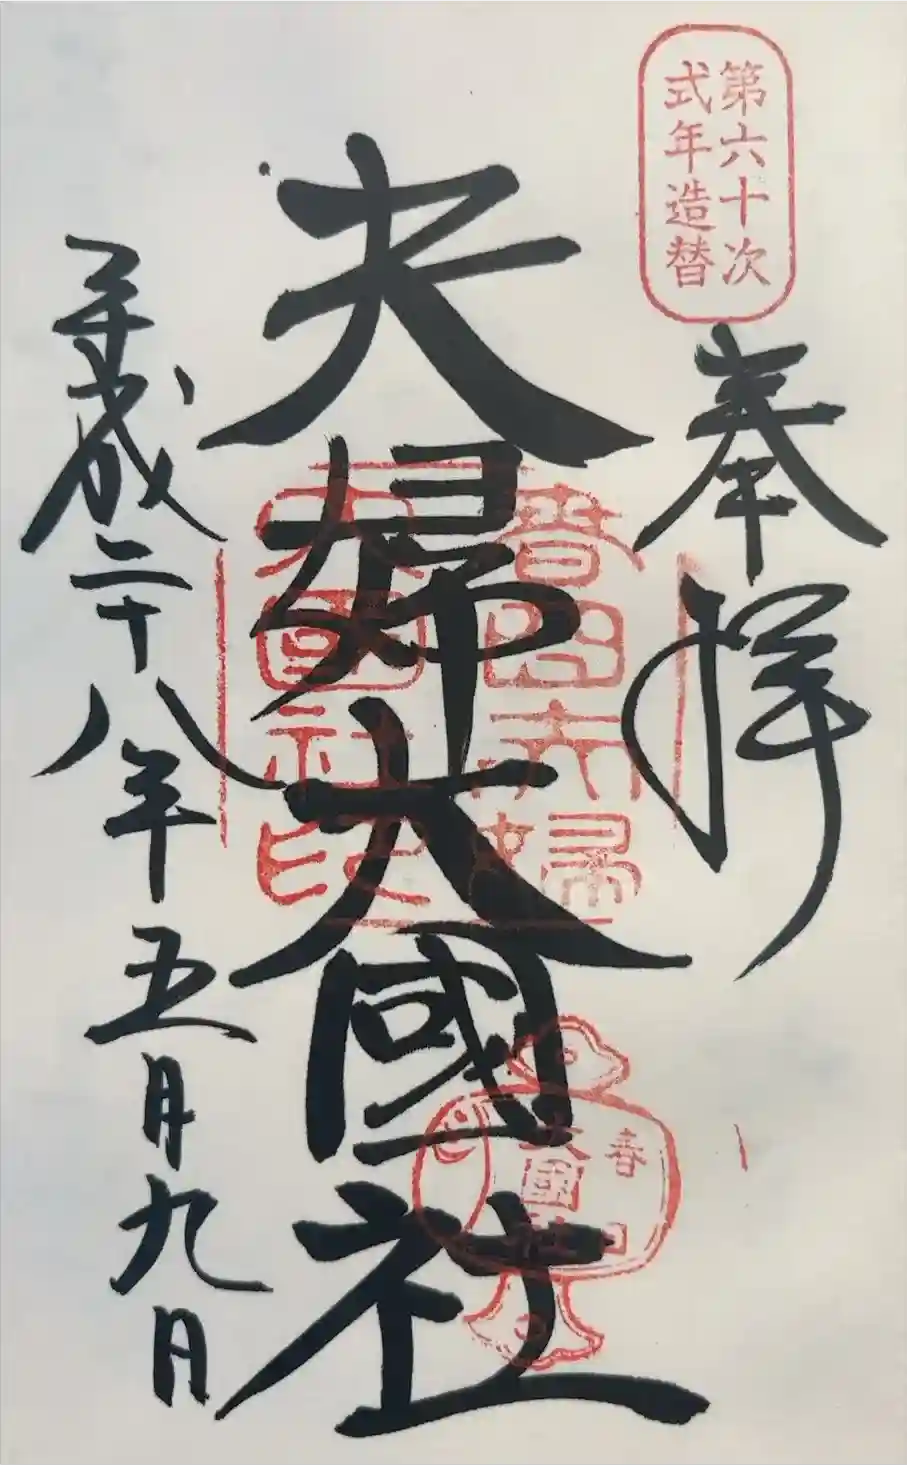 第六十次
式年造替
奉拝
夫婦大國社
春日夫婦
大國社印
春日
大國社
平成二十八年五月九日